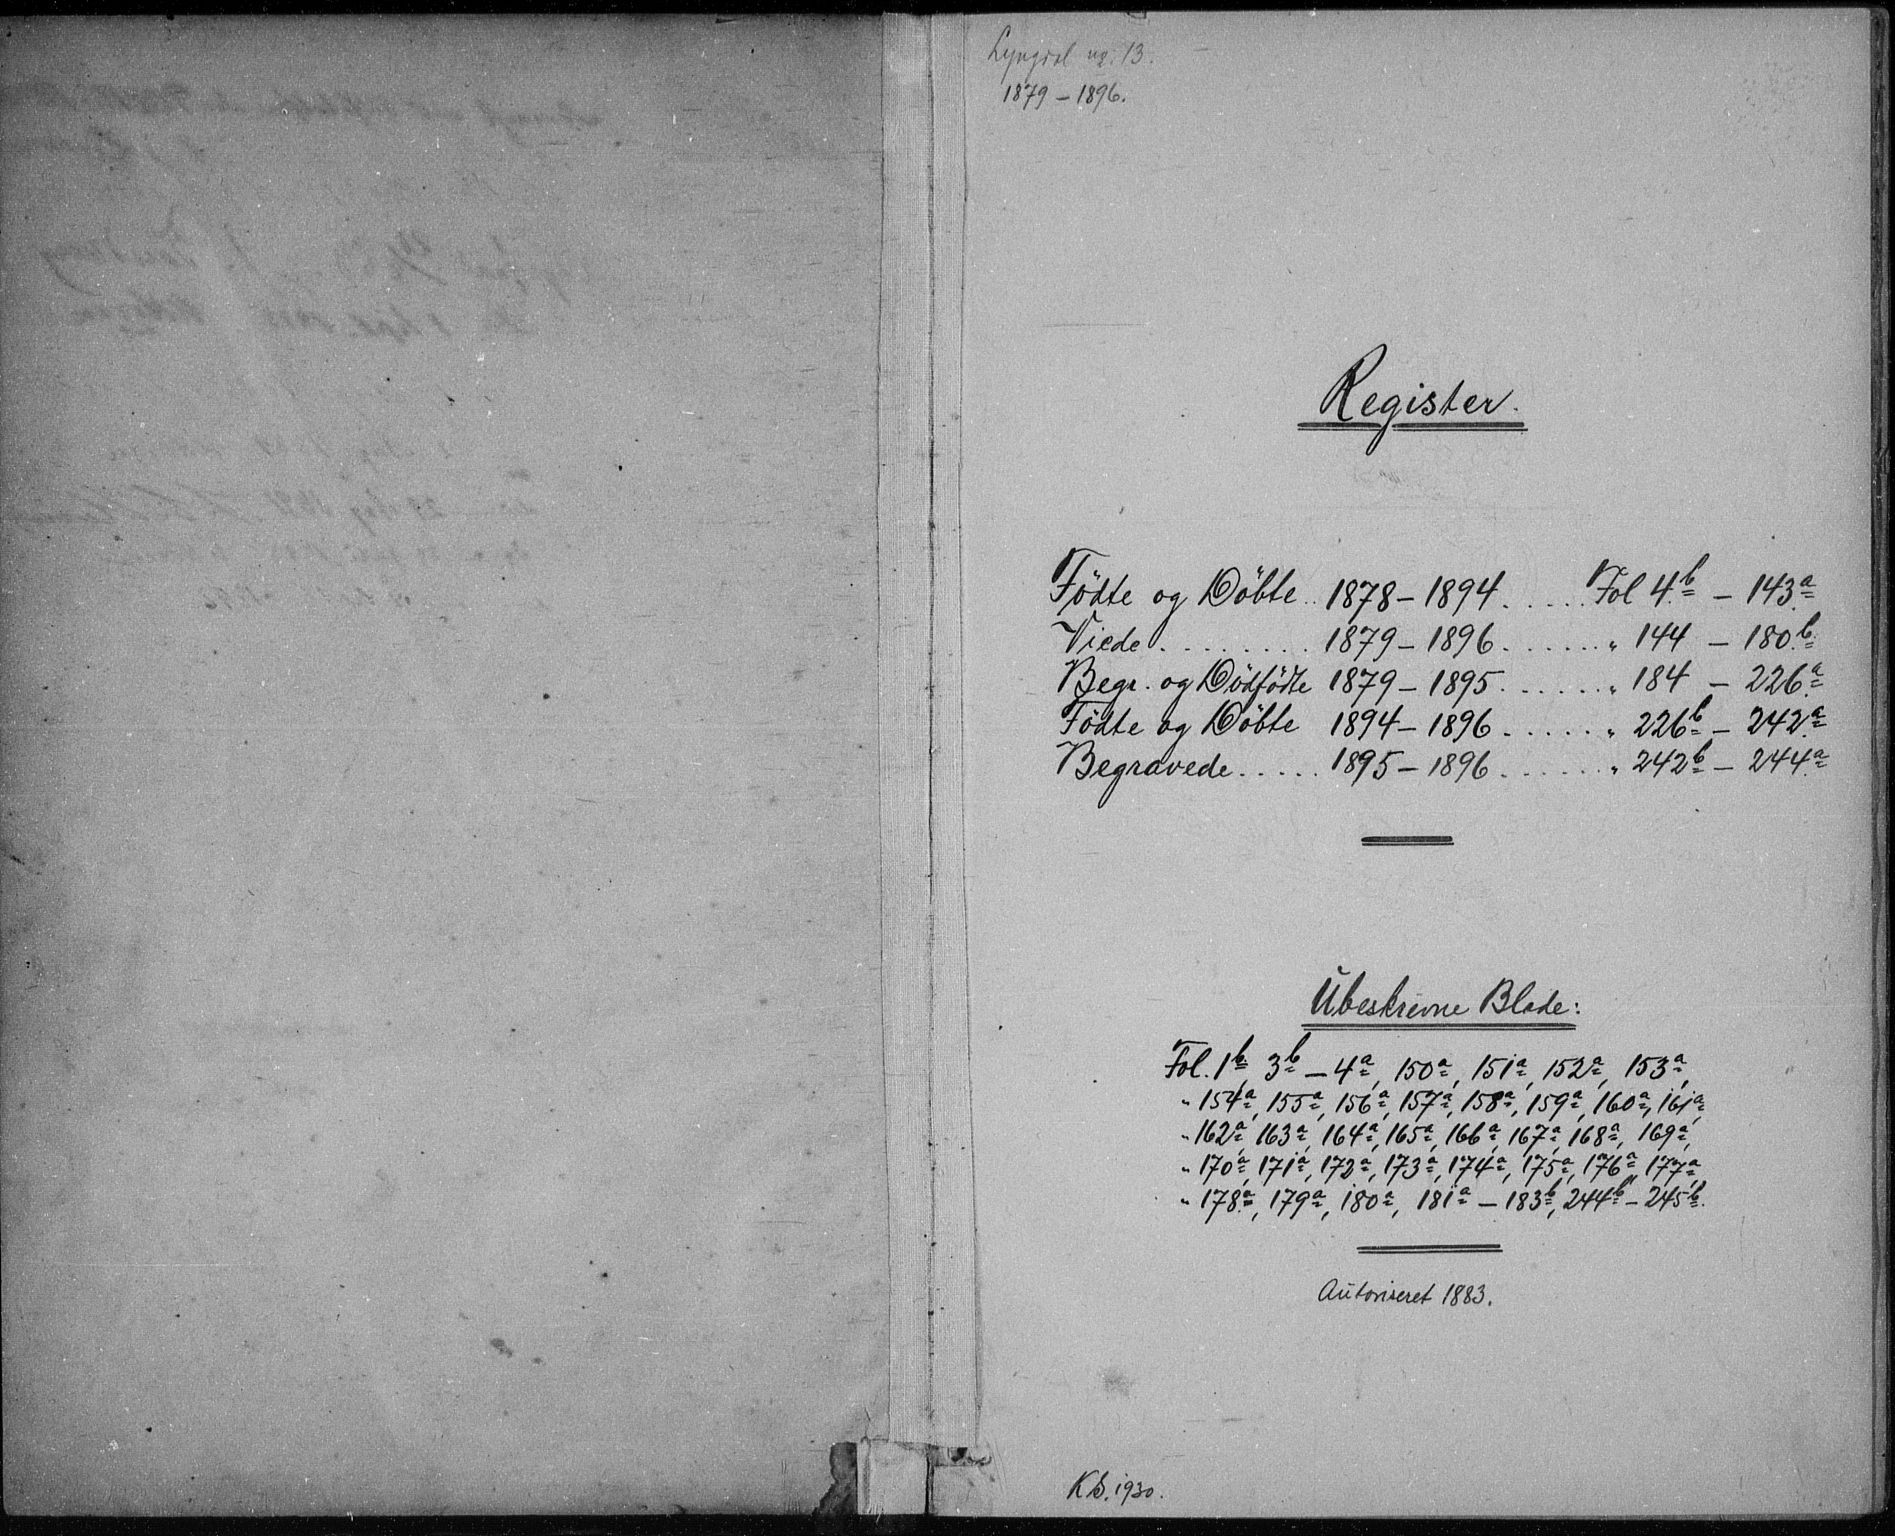 Lyngdal nr. 13.
1879 – 1896.
Register.
Födte og Döbte .. 1878 – 1894 ..... Fol 4.b – 143.a
Viede ......... 1879 – 1896 ...... " 144 – 180.b
Begr. og Dödfödte 1879 – 1895 ...... " 184 – 226.a
Födte og Döbte 1894 – 1896 ...... " 226b – 242a
Begravede ..... 1895 – 1896 ...... " 242b – 244.a
Ubeskrevne Blade:
Fol. 1b 3b – 4a, 150a, 151a, 152a, 153a,
" 154a, 155a, 156a, 157a, 158a, 159a, 160a, 161a,
" 162a, 163a, 164a, 165a, 166a, 167a, 168a, 169a,
" 170a, 171a, 172a, 173a, 174a, 175a, 176a, 177a,
" 178.a, 179a, 180a, 181a – 183b, 244b – 245b.
Autoriseret 1883.
K.S. 1930.